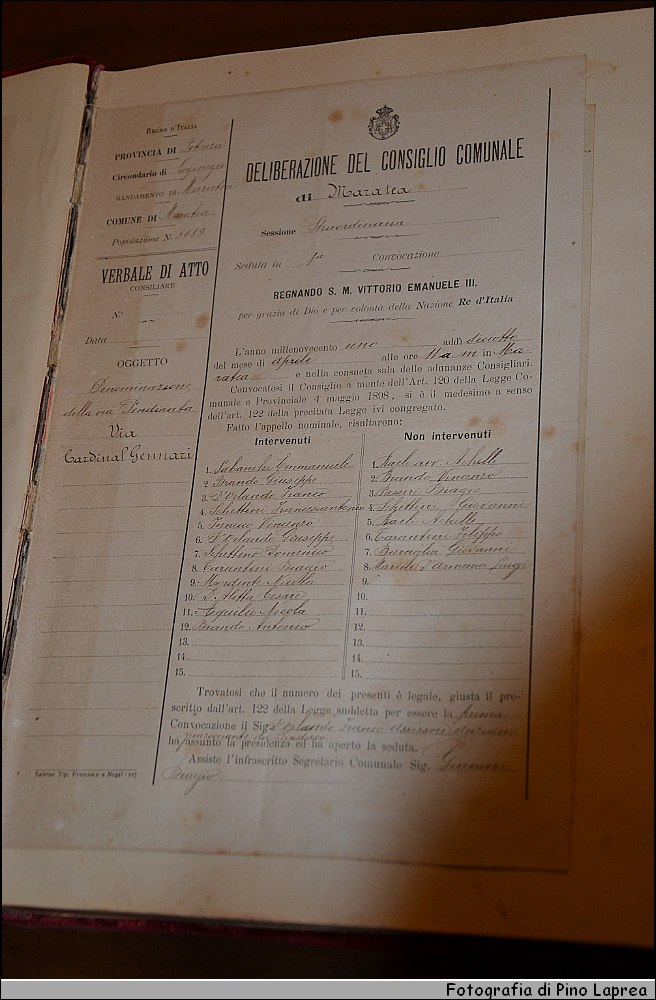 REGNO D'ITALIA
PROVINCIA DI Potenza
Circondario di Lagonegro
MANDAMENTO DI Maratea
COMUNE DI Maratea
Popolazione N.
VERBALE DI ATTO
CONSILIARE
N.° --
Data
OGGETTO
Denominazione
della via Pendinata
Via
Cardinal Gennari
Salerno Tip. Fruscione e Negri - 107
DELIBERAZIONE DEL CONSIGLIO COMUNALE
di Maratea
Sessione Straordinaria
Seduta in 1a Convocazione
REGNANDO S. M. VITTORIO EMANUELE III.
per grazia di Dio e per volontà della Nazione Re d'Italia
L'anno millenovecento uno addì diciotto
del mese di Aprile alle ore 11 a m in Ma-
ratea e nella consueta sala delle adunanze Consigliari.
Convocatosi il Consiglio a mente dell'Art. 120 della Legge Co-
munale e Provinciale 4 maggio 1898, si è il medesimo a senso
dell'art. 122 della precitata Legge ivi congregato.
Fatto l'appello nominale, risultarono:
Intervenuti
1. Emmanuele
2. Brando Giuseppe
3. D'Orlando Franco
4. Schettini Francescantonio
5. Vincenzo
6. D'Orlando Giuseppe
7. Schettino Domenico
8. Tarantini Biagio
9. Mordente Nicola
10. D'Alitti Cesare
11. Nicola
12. Brando Antonio
13.
14.
15.
Non intervenuti
1. Achille
2. Brando Vincenzo
3. Biagio
4. Schettini Giovanni
5. Achille
6. Tarantini Filippo
7. Buraglia Giovanni
8. Luigi
9.
10.
11.
12.
13.
14.
15.
Trovatosi che il numero dei presenti è legale, giusta il pre-
scritto dall'art. 122 della Legge suddetta per essere la prima
Convocazione il Sig. D'Orlando Franco Assessore Anziano
funzionante da Sindaco
ha assunto la presidenza ed ha aperto la seduta.
Assiste l'infrascritto Segretario Comunale Sig.
Biagio
Fotografia di Pino Laprea